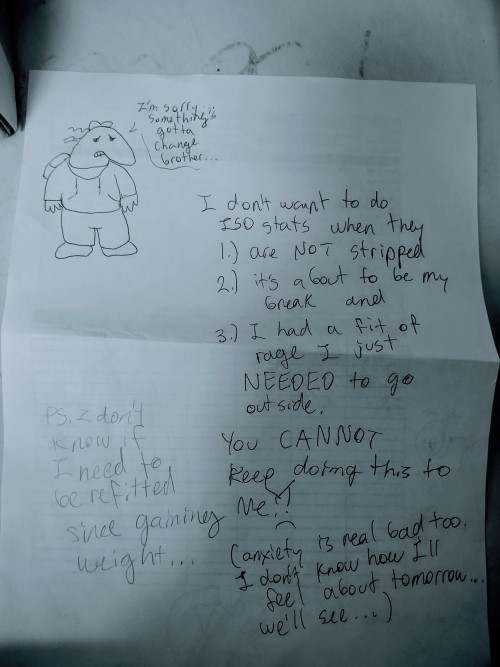 I'm sorry
something's
gotta
change
brother...
I don't want to do
ISO stats when they
1.) are NOT stripped
2.) it's about to be my
break and
3.) I had a fit of
rage I just
NEEDED to go
outside.
You CANNOT
keep doing this to
me!!
(anxiety is real bad too.
I don't know how I'll
feel about tomorrow...
we'll see...)
PS, I don't
know if
I need to
be refitted
since gaining
weight...